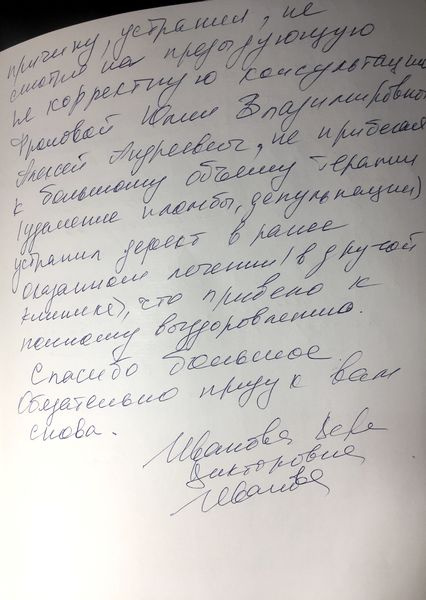 причину, устранил, не
смотря на предыдущую
не корректную консультацию
Фроловой Юлии Владимировны
Алексей Андреевич, не прибегая
к большому объёму терапии
(удаление пломбы, депульпации)
устранил дефект в ранее
оказанном лечении (в другой
клинике), что привело к
полному выздоровлению.
Спасибо большое.
Обязательно приду к вам
снова.
Иванова Вера
Викторовна
Иванова